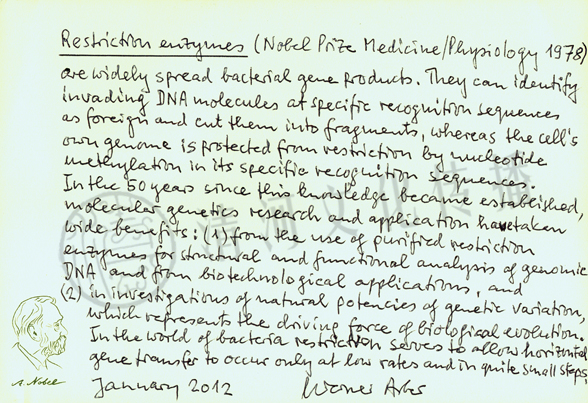 Restriction enzymes (Nobel Prize Medicine/Physiology 1978)
are widely spread bacterial gene products. They can identify
invading DNA molecules at specific recognition sequences
as foreign and cut them into fragments, whereas the cell's
own genome is protected from restriction by nucleotide
methylation in its specific recognition sequences.
In the 50 years since this knowledge became established,
molecular genetics research and application have taken
wide benefits: (1) from the use of purified restriction
enzymes for structural and functional analysis of genomic
DNA and from biotechnological applications, and
(2) in investigations of natural potencies of genetic variation,
which represents the driving force of biological evolution.
In the world of bacteria restriction serves to allow horizontal
gene transfer to occur only at low rates and in quite small steps.
January 2012 Werner Arber
A. Nobel